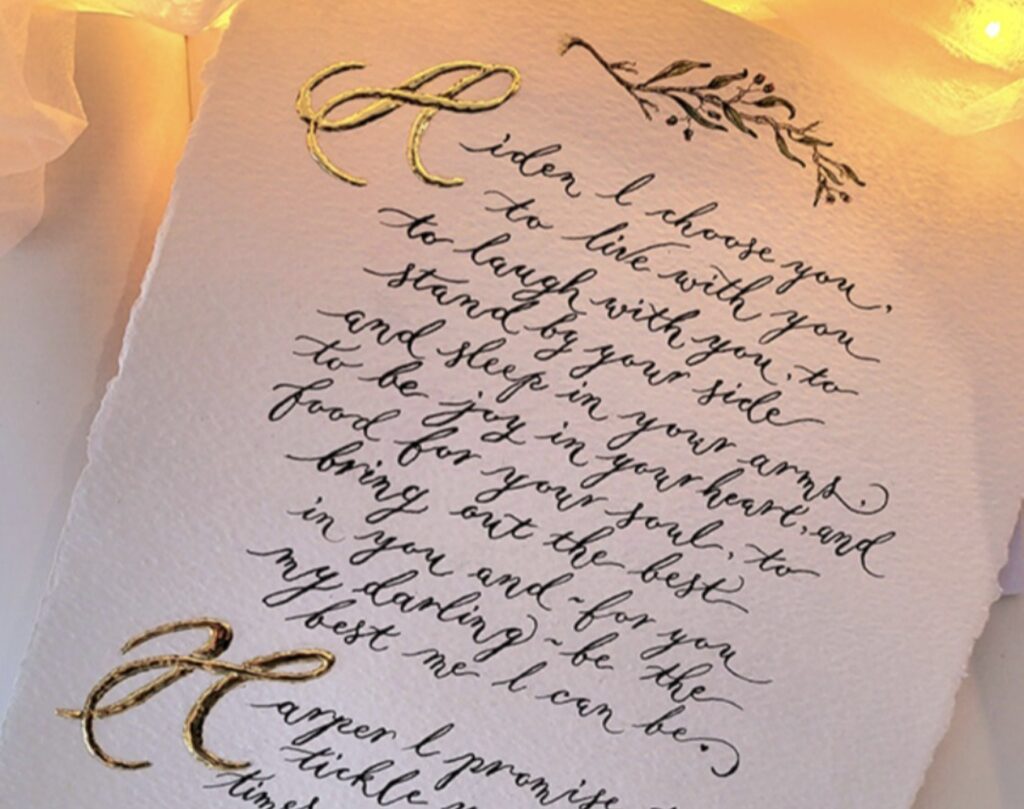 Aiden I choose you,
to live with you
to laugh with you, to
stand by your side
and sleep in your arms.
to be joy in your heart, and
food for your soul, to
bring out the best
in you and ~ for you
my darling ~ be the
best me I can be.
Harper I promise
tickle
times